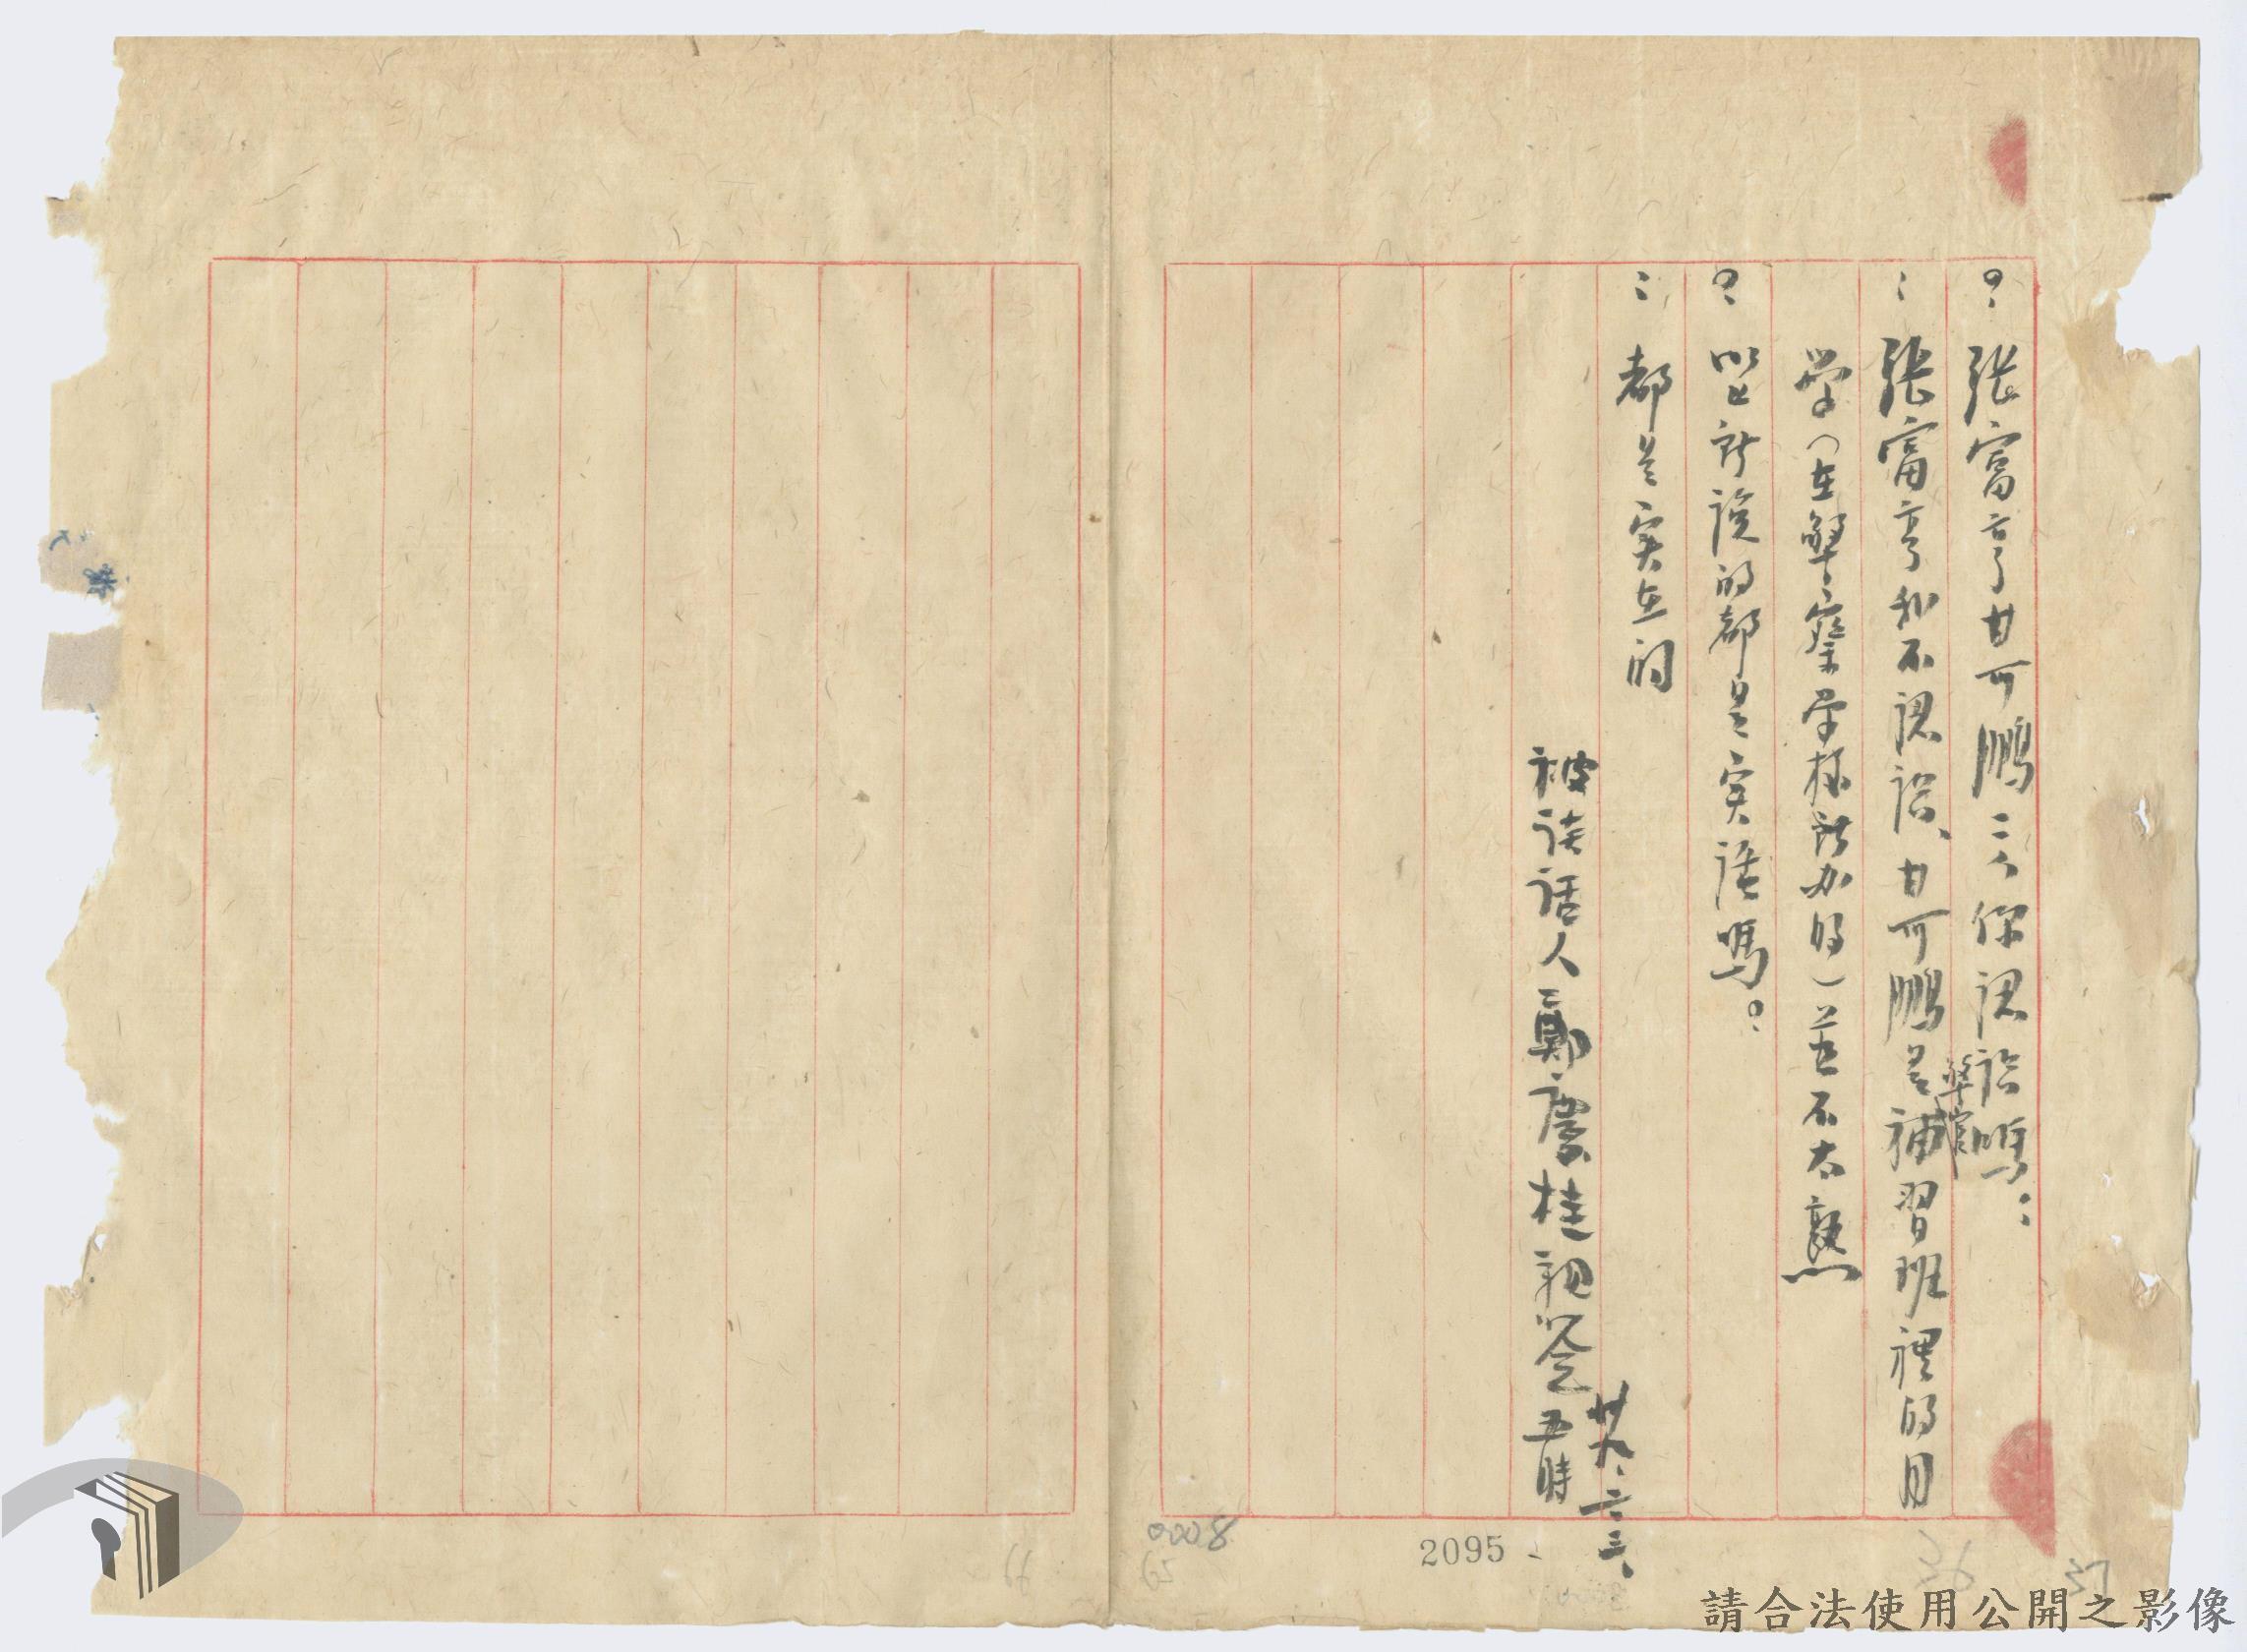 ？：張富亨甘可鵬二人你認識嗎：
：張富亨我不認識、甘可鵬是警官補習班裡的同
學（在警察学校所办的）並不太熟
？：以上所說的都是实話嗎？：
：都是实在的
被談話人鄭慶桂親簽 五時
廿九、六、三、
2095
0008
36
37
請合法使用公開之影像